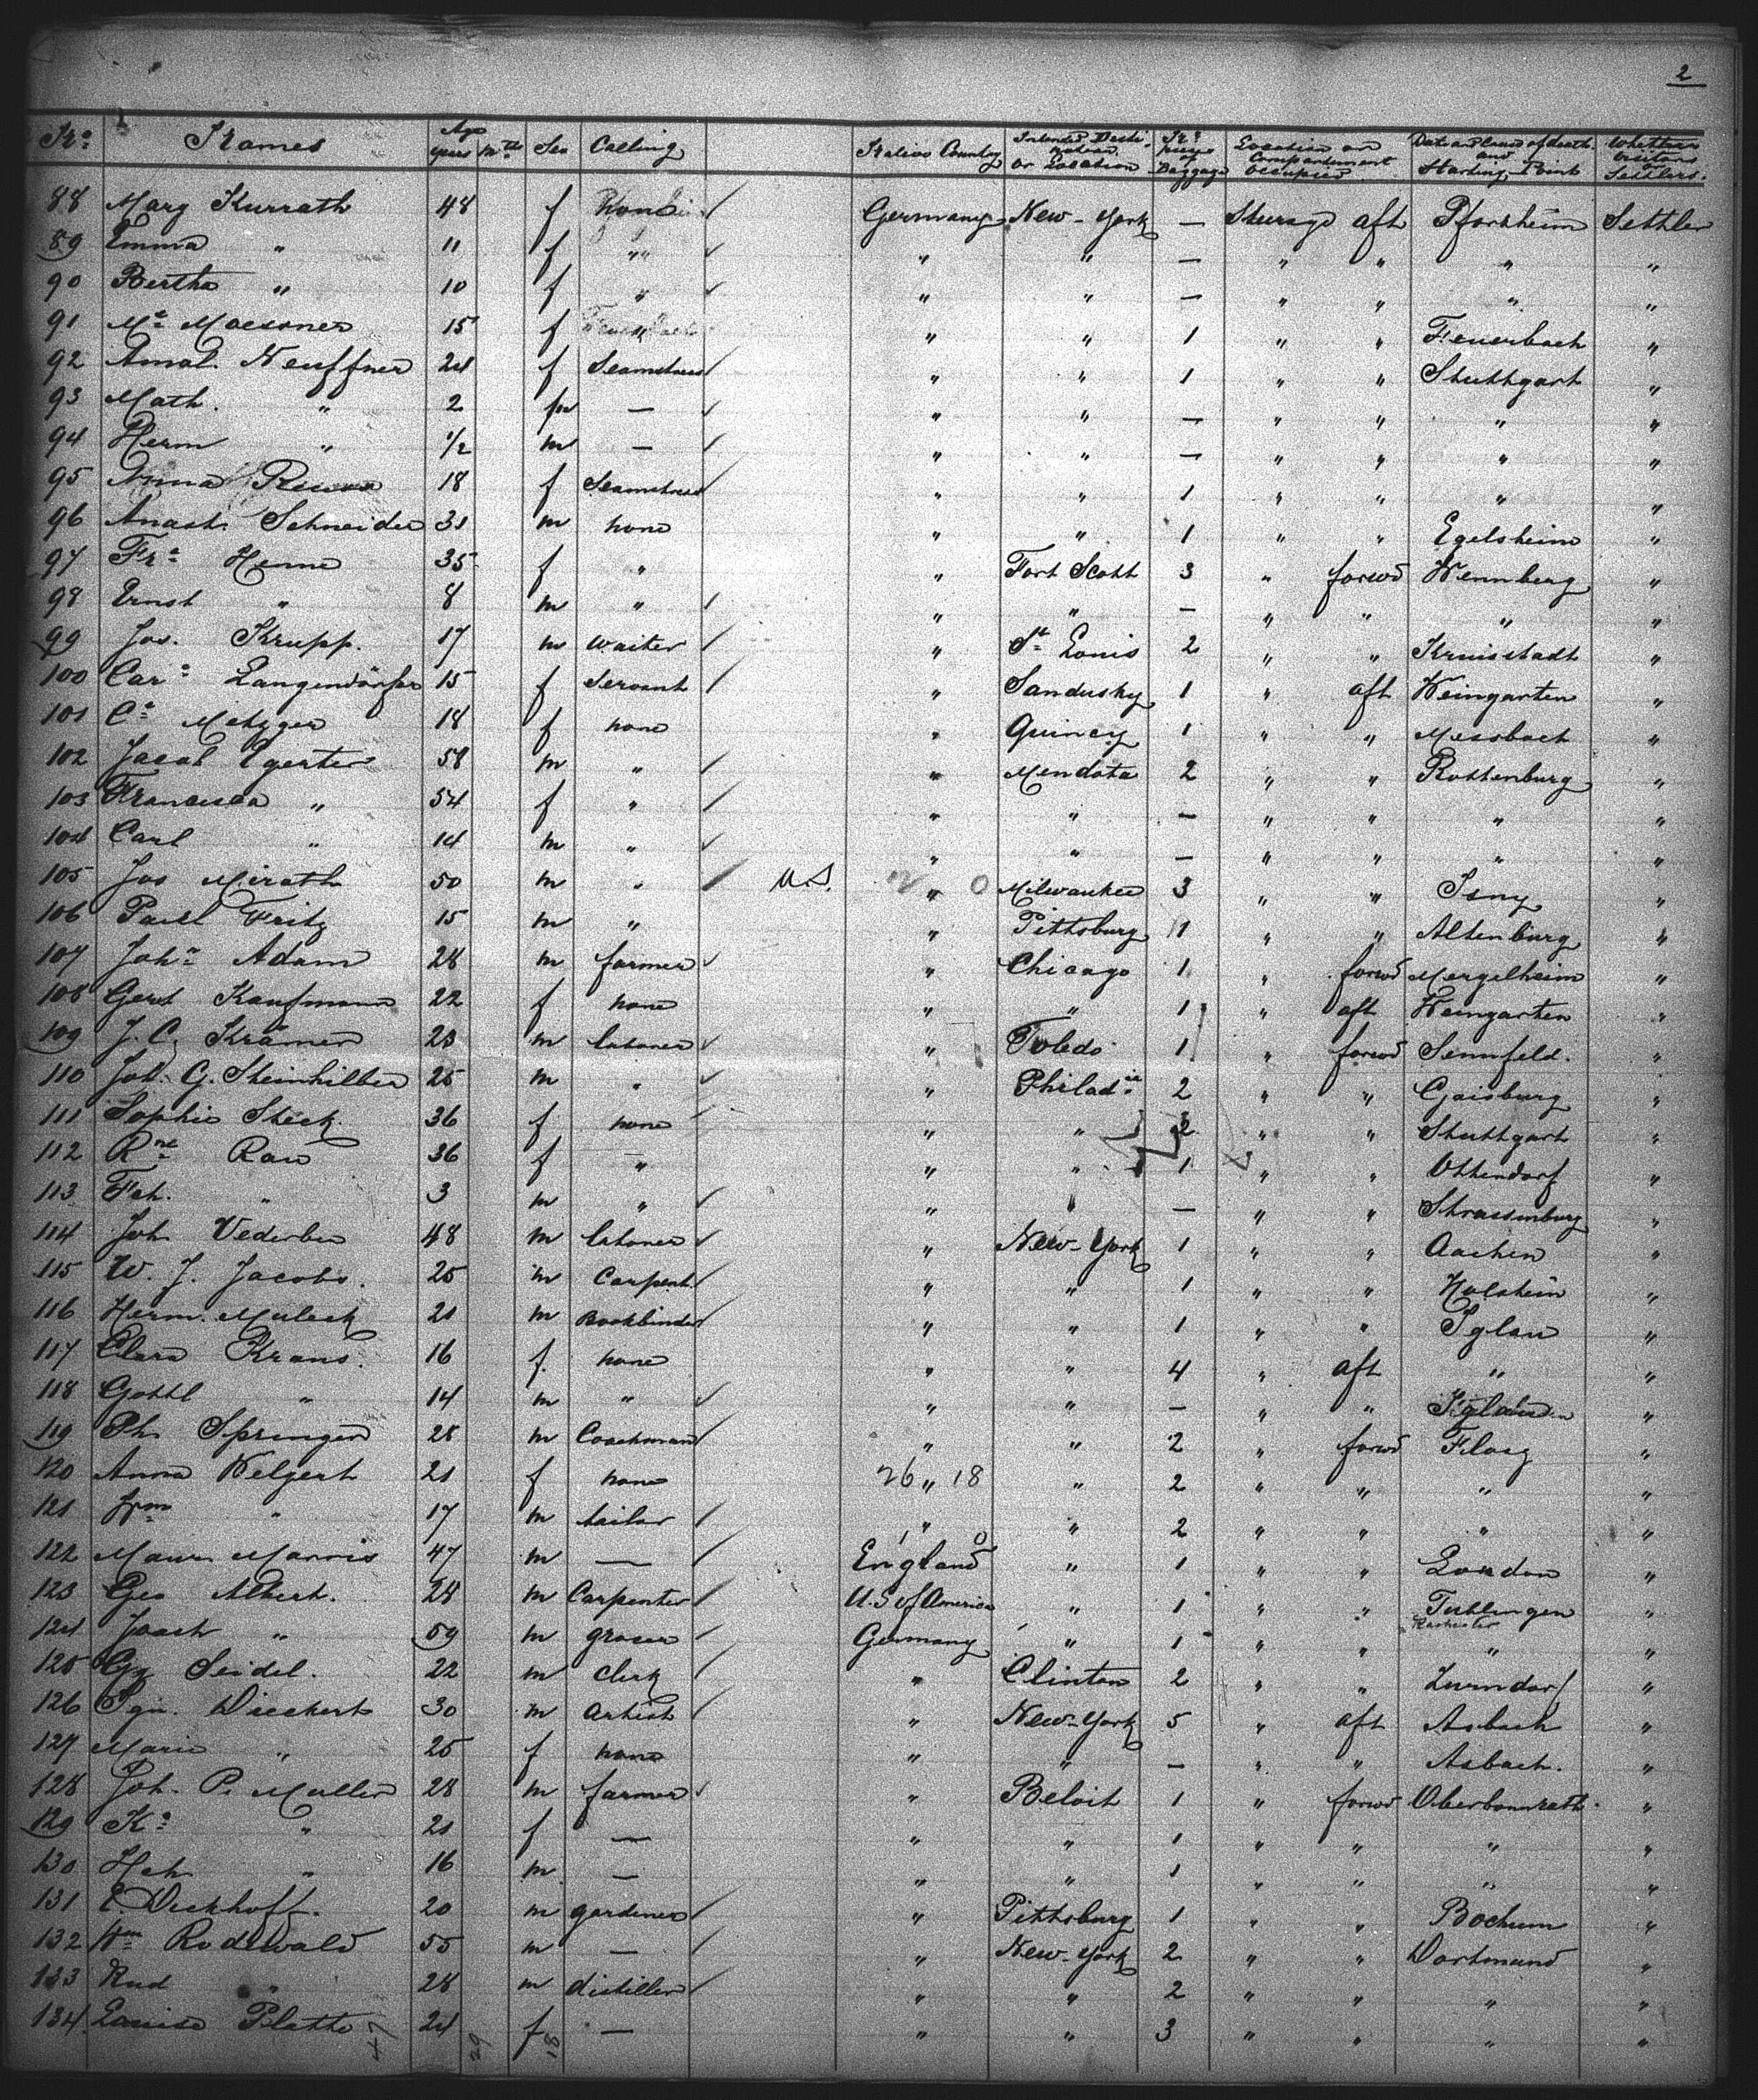 2
Nr. Names Age years mths Sex Calling Native Country Intended Destination or Location Nr. pieces of Baggage Location or Compartement occupied Date and Cause of death and Starting Point Whether visitors Settlers.
88 Marg Kurrath 48 f None Germany New-York — aft Pforzheim Settler
89 Emma " 11 f " " " — " " " "
90 Bertha " 10 f " " " — " " " "
91 Ma Maessner 15 f " " " 1 " " Feuerbach "
92 Amal. Neuffner 24 f Seamstress " " 1 " " Stuttgart "
93 Math. " 2 — " " — " " " "
94 Herm " 1/2 m — " " — " " " "
95 Anna 18 f Seamstress " " 1 " " " "
96 Anast. Schneider 31 m none " " 1 " " Egelsheim "
97 Fr. Henne 35 f " " Fort Scott 3 " forwd Wennberg "
98 Ernst " 8 m " " " — " " " "
99 Jos. Krupp. 17 m waiter " St Louis 2 " " "
100 Car. Langendörfer 15 f Servant " Sandusky 1 " aft Weingarten "
101 Ca Metzger 18 f none " Quincy 1 " " Messbach "
102 Jacob Egerter 58 m " " Mendota 2 " " Rottenburg "
103 Francisca " 54 f " " " — " " " "
104 Carl " 14 m " " " — " " " "
105 Jos Mirath 50 m " U.S. " 0 Milwaukee 3 " " Isny "
106 Paul Fritz 15 m " " Pittsburg 1 " " Altenburg "
107 Joh. Adam 28 m farmer " Chicago 1 " forwd Mergelheim "
108 Gert Kaufmann 22 f none " " 1 " aft Weingarten "
109 J. C. Krämer 23 m laborer " Toledo 1 " forwd Sennfeld. "
110 Joh. G. Steinhilber 25 m " " Philadia 2 " " Gaisburg "
111 Sophie Steck. 36 f none " " 2 " " Stuttgart "
112 Rne Rau 36 f " " " 1 " " Ottendorf "
113 Fch. " 3 m " " " — " " Strassenburg "
114 Joh Vederber 48 m laborer " New-York 1 " " Aachen "
115 W. J. Jacobs. 25 m Carpent. " " 1 " " Holstein "
116 Herm. Muleck 21 m Bookbinder " " 1 " " Iglau "
117 Clara Kraus. 16 f. none " " 4 " aft " "
118 Gottl " 14 m " " " — " " "
119 Ph. Springer 28 m Coachman " " 2 " forwd "
120 Anna Welgert 21 f none 26 " 18 " 2 " " " "
121 Wm " 17 m tailor " " 2 " " " "
122 Maur. Morris 47 m — England " 1 " " London "
123 Geo Albert. 28 m Carpenter U.S of America " 1 " " Tuttlingen "
124 " 59 m grocer Germany " 1 " " Rochester " "
125 Gg Seidel. 22 m Clerk " Clinton 2 " " Zurndorf "
126 Ign. Dieckert 30 m Artist " New-York 5 " aft Asbach "
127 Marie " 25 f none " " — " " Asbach. "
128 Joh. P. Muller 28 m farmer " Beloit 1 " forwd "
129 Ka " 21 f — " " 1 " " " "
130 Hch " 16 m — " " 1 " " " "
131 E. Dickhoff. 20 m gardener " Pittsburg 1 " " Bochum "
132 Wm Rodewald 55 m — " New-York 2 " " Dortmund "
133 Rud " 28 m distiller " " 2 " " " "
134. Louise Platte 24 f — " " 3 " " " "
47 29 18